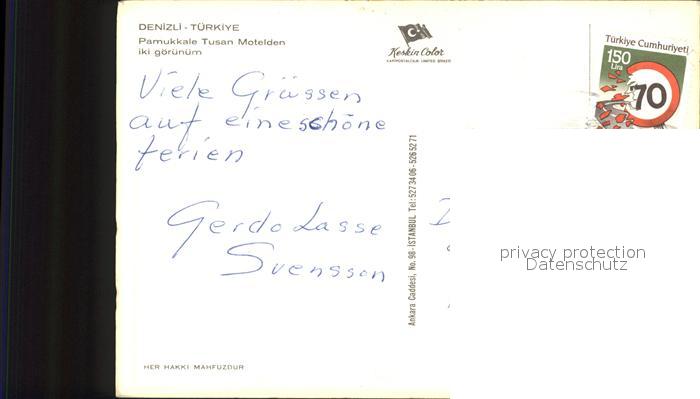 DENİZLİ - TÜRKİYE
Pamukkale Tusan Motelden
iki görünüm
Keskin Color
KARTPOSTALCILIK LIMITED ŞİRKETİ
Türkiye Cumhuriyeti
150
Lira
70
Viele Grüssen
auf eine schöne
ferien
Gerdo Lasse
Svensson
Ankara Caddesi, No. 98 - İSTANBUL Tel: 5273406 - 5265271
privacy protection
Datenschutz
HER HAKKI MAHFUZDUR